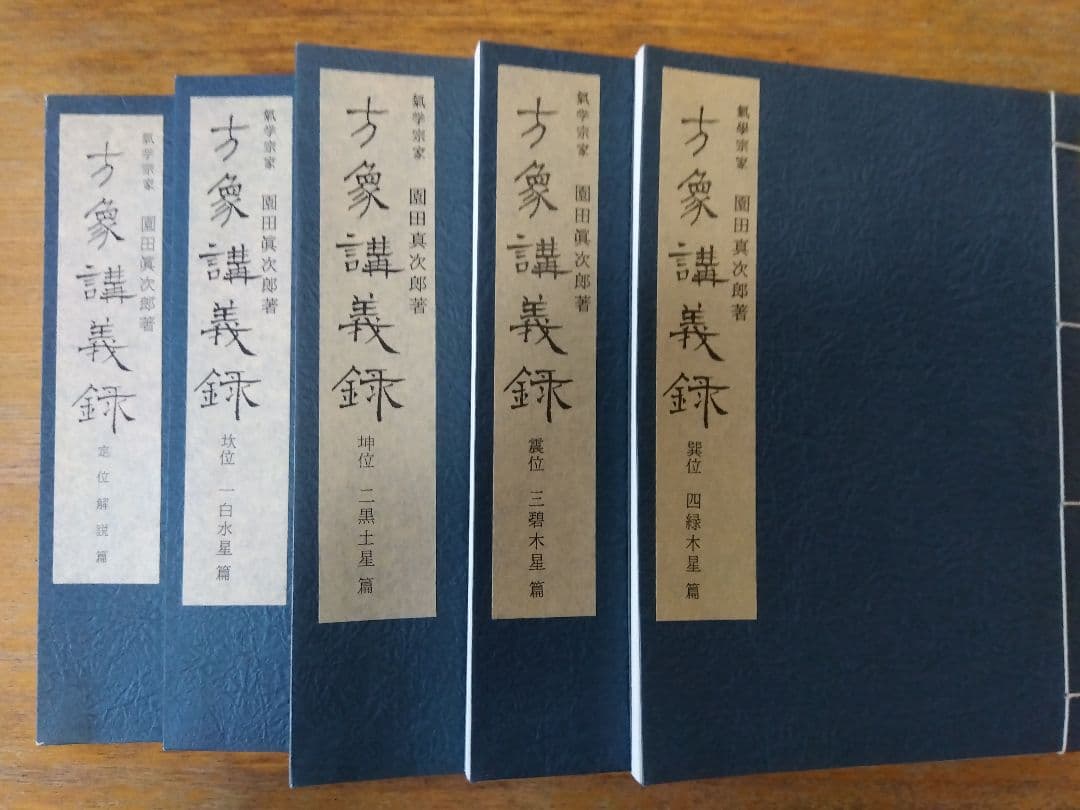 氣学宗家 園田眞次郎著
方象講義録
定位解説篇
氣学宗家 園田眞次郎著
方象講義録
坎位 一白水星篇
氣学宗家 園田真次郎著
方象講義録
坤位 二黒土星篇
氣学宗家 園田眞次郎著
方象講義録
震位 三碧木星篇
氣學宗家 園田眞次郎著
方象講義録
巽位 四緑木星篇